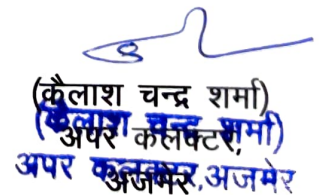 (कैलाश चन्द्र शर्मा)
(कैलाश चन्द्र शर्मा)
अपर कलक्टर,
अपर कलक्टर, अजमेर
अजमेर,